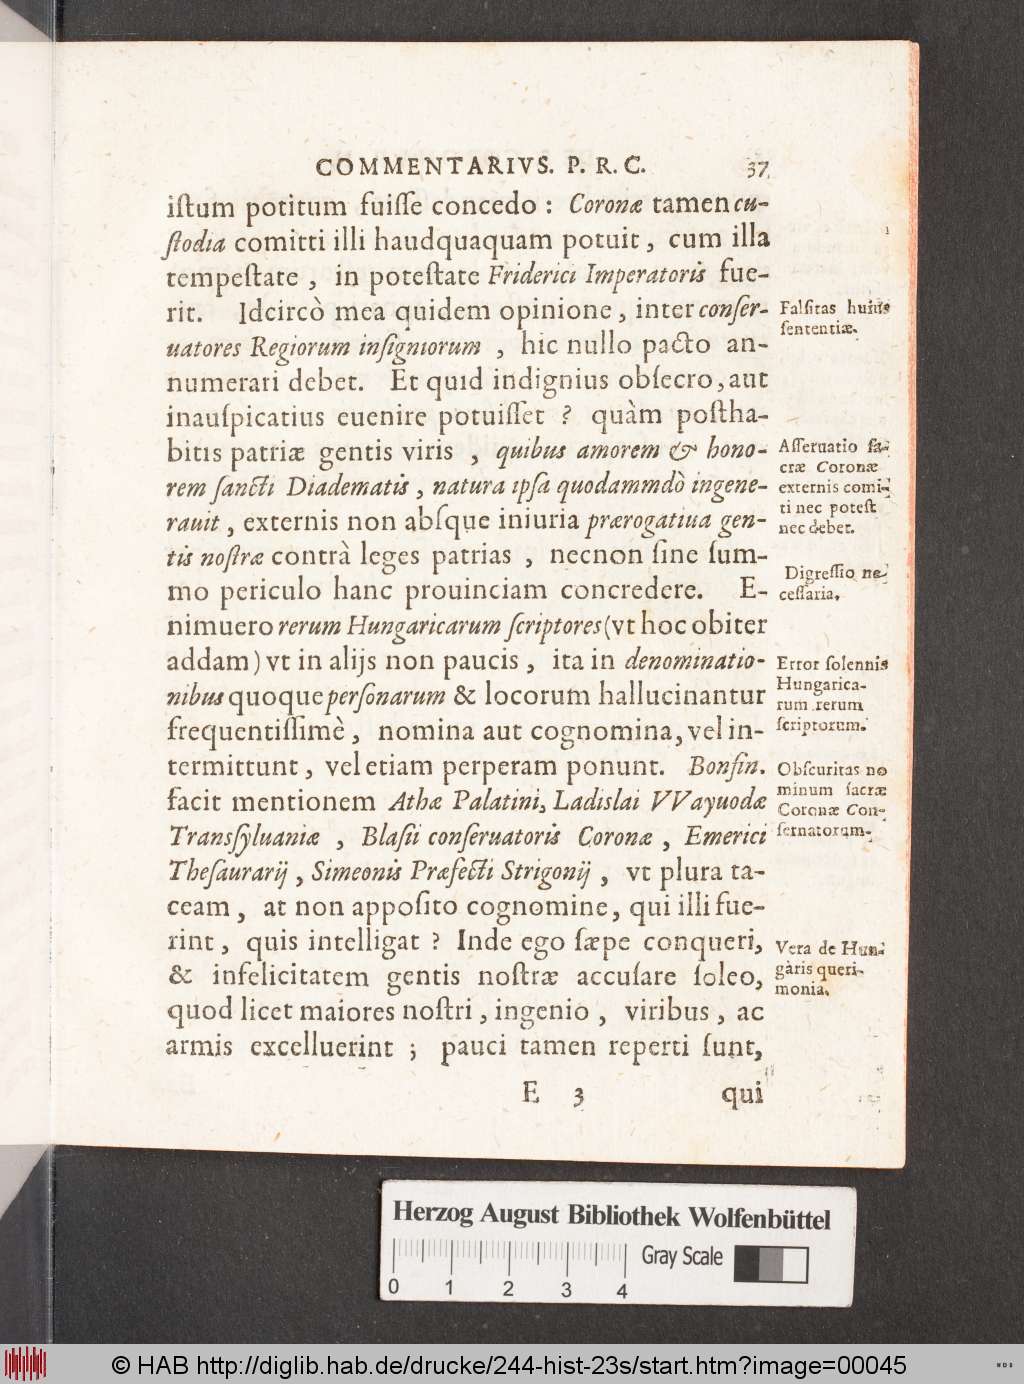 COMMENTARIVS. P. R. C. 37
iſtum potitum fuiſſe concedo : Coronæ tamen cu-
ſtodia comitti illi haudquaquam potuit, cum illa
tempeſtate, in poteſtate Friderici Imperatoris fue-
rit. Idcircò mea quidem opinione, inter conſer-
uatores Regiorum inſigniorum, hic nullo pacto an-
numerari debet. Et quid indignius obſecro, aut
inauſpicatius euenire potuiſſet ? quàm poſtha-
bitis patriæ gentis viris, quibus amorem & hono-
rem ſancti Diadematis, natura ipſa quodammdò ingene-
rauit, externis non abſque iniuria prærogatiua gen-
tis noſtræ contrà leges patrias, necnon ſine ſum-
mo periculo hanc prouinciam concredere. E-
nimuero rerum Hungaricarum ſcriptores (vt hoc obiter
addam) vt in alijs non paucis, ita in denominatio-
nibus quoque perſonarum & locorum hallucinantur
frequentiſſimè, nomina aut cognomina, vel in-
termittunt, vel etiam perperam ponunt. Bonfin.
facit mentionem Athæ Palatini, Ladislai VVayuodæ
Transſyluaniæ, Blaſii conſeruatoris Coronæ, Emerici
Theſaurarij, Simeonis Præfecti Strigonij, vt plura ta-
ceam, at non appoſito cognomine, qui illi fue-
rint, quis intelligat ? Inde ego ſæpe conqueri,
& infelicitatem gentis noſtræ accuſare ſoleo,
quod licet maiores noſtri, ingenio, viribus, ac
armis excelluerint ; pauci tamen reperti ſunt,
E 3 qui
Falſitas huius
ſententiæ.
Aſſeruatio ſa-
cræ Coronæ
externis comi-
ti nec poteſt
nec debet.
Digreſſio ne-
ceſſaria.
Error ſolennis
Hungarica-
rum rerum
ſcriptorum.
Obſcuritas no
minum ſacræ
Coronæ Con-
ſeruatorum.
Vera de Hun-
gàris queri-
monia.
Herzog August Bibliothek Wolfenbüttel
0 1 2 3 4 Gray Scale
© HAB http://diglib.hab.de/drucke/244-hist-23s/start.htm?image=00045